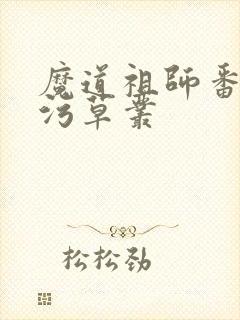 魔道祖师番
污草丛
松松劲